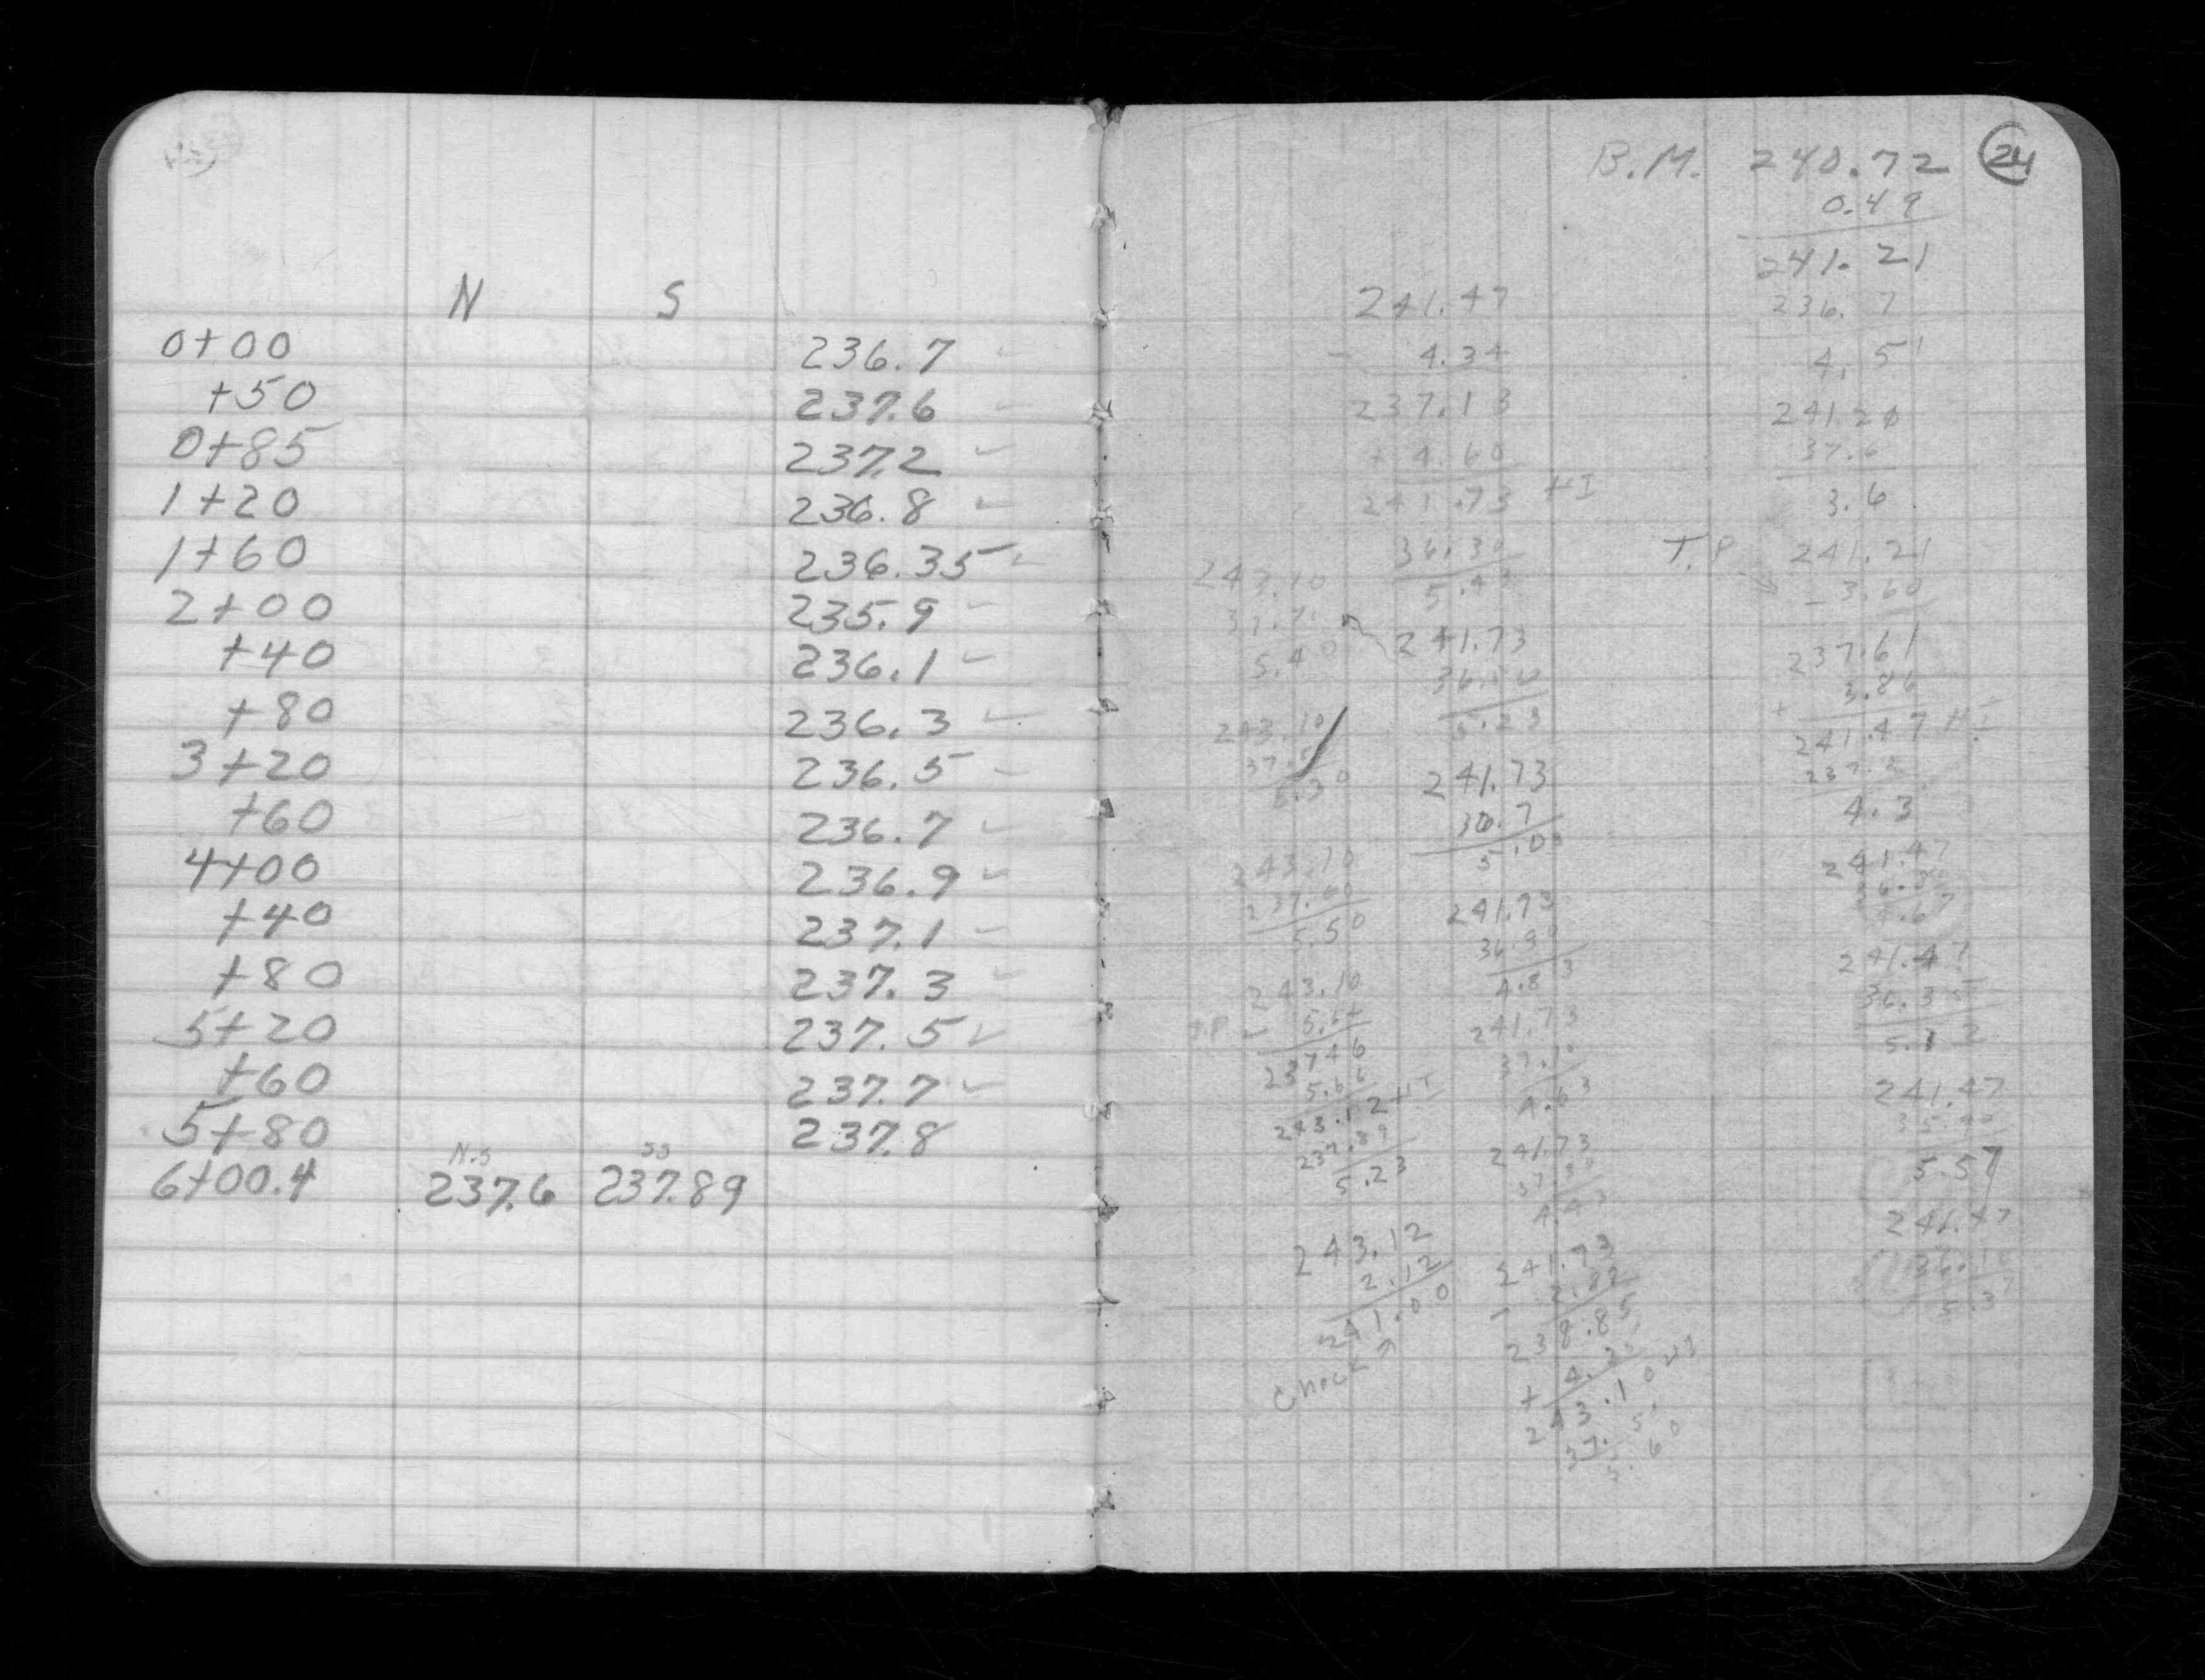 N S
0+00 236.7 ✓
+50 237.6 ✓
0+85 237.2 ✓
1+20 236.8 ✓
1+60 236.35 ✓
2+00 235.9 ✓
+40 236.1 ✓
+80 236.3 ✓
3+20 236.5 ✓
+60 236.7 ✓
4+00 236.9 ✓
+40 237.1 ✓
+80 237.3 ✓
5+20 237.5 ✓
+60 237.7 ✓
5+80 237.8
N.S SS
6+00.4 237.6 237.89
24
B.M. 240.72
0.49
241.21
236.7
4.51
241.20
37.6
3.6
T.P. 241.21
- 3.60
237.61
+ 3.86
241.47 HI
237.2
4.3
241.47
4.67
241.47
36.35
5.12
241.47
35.90
5.57
241.47
36.10
5.37
241.47
- 4.34
237.13
+ 4.60
241.73 HI
36.30
5.43
241.73
5.23
241.73
36.7
5.03
241.73
36.9
4.83
241.73
37.10
4.63
241.73
37.30
4.43
241.73
- 2.88
238.85
+ 4.25
243.10 HI
37.5
5.60
243.10
37.70
5.40
243.10
37.
5.30
243.10
237.60
5.50
243.10
T.P - 5.64
237.46
5.66
243.12 HI
237.89
5.23
243.12
2.12
241.00
Check